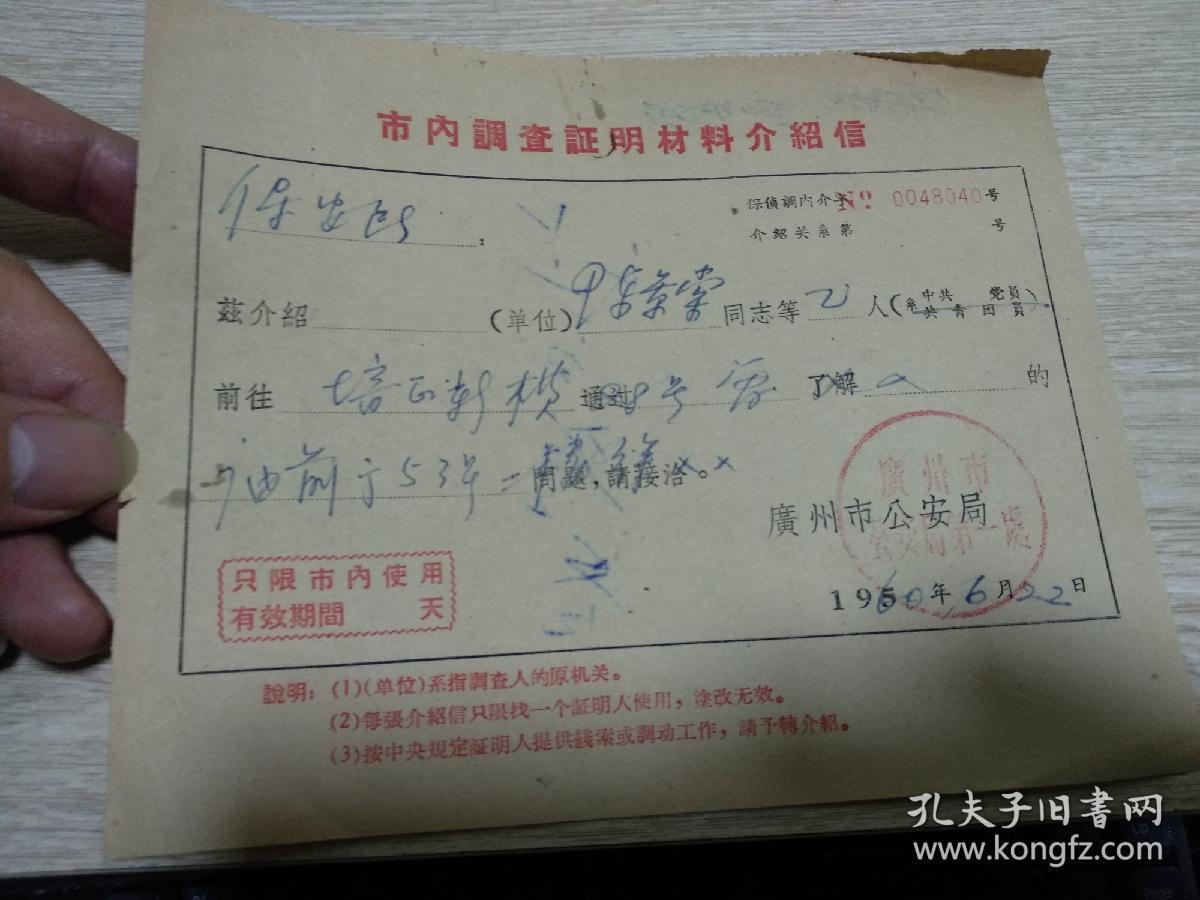 市內調查証明材料介紹信
保偵調內介字№ 0048040号
介紹关系第 号
茲介紹 (单位) 同志等 人(系中共 党員 共青团員)
前往 培正新横 通过 38号 了解 的
前于53年 問題,請接洽。
廣州市
公安局第一處
廣州市公安局
1960年6月22日
只限市內使用
有效期間 天
說明:(1)(单位)系指調查人的原机关。
(2)每張介紹信只限找一个証明人使用,塗改无效。
(3)按中央規定証明人提供綫索或調动工作,請予轉介紹。
孔夫子旧書网
www.kongfz.com